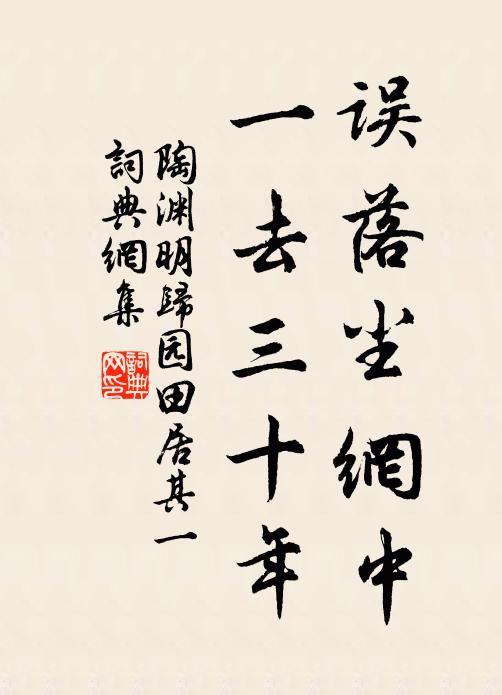 误落尘網中
一去三十年
陶渊明歸园田居其一
詞典網集
詞典網印